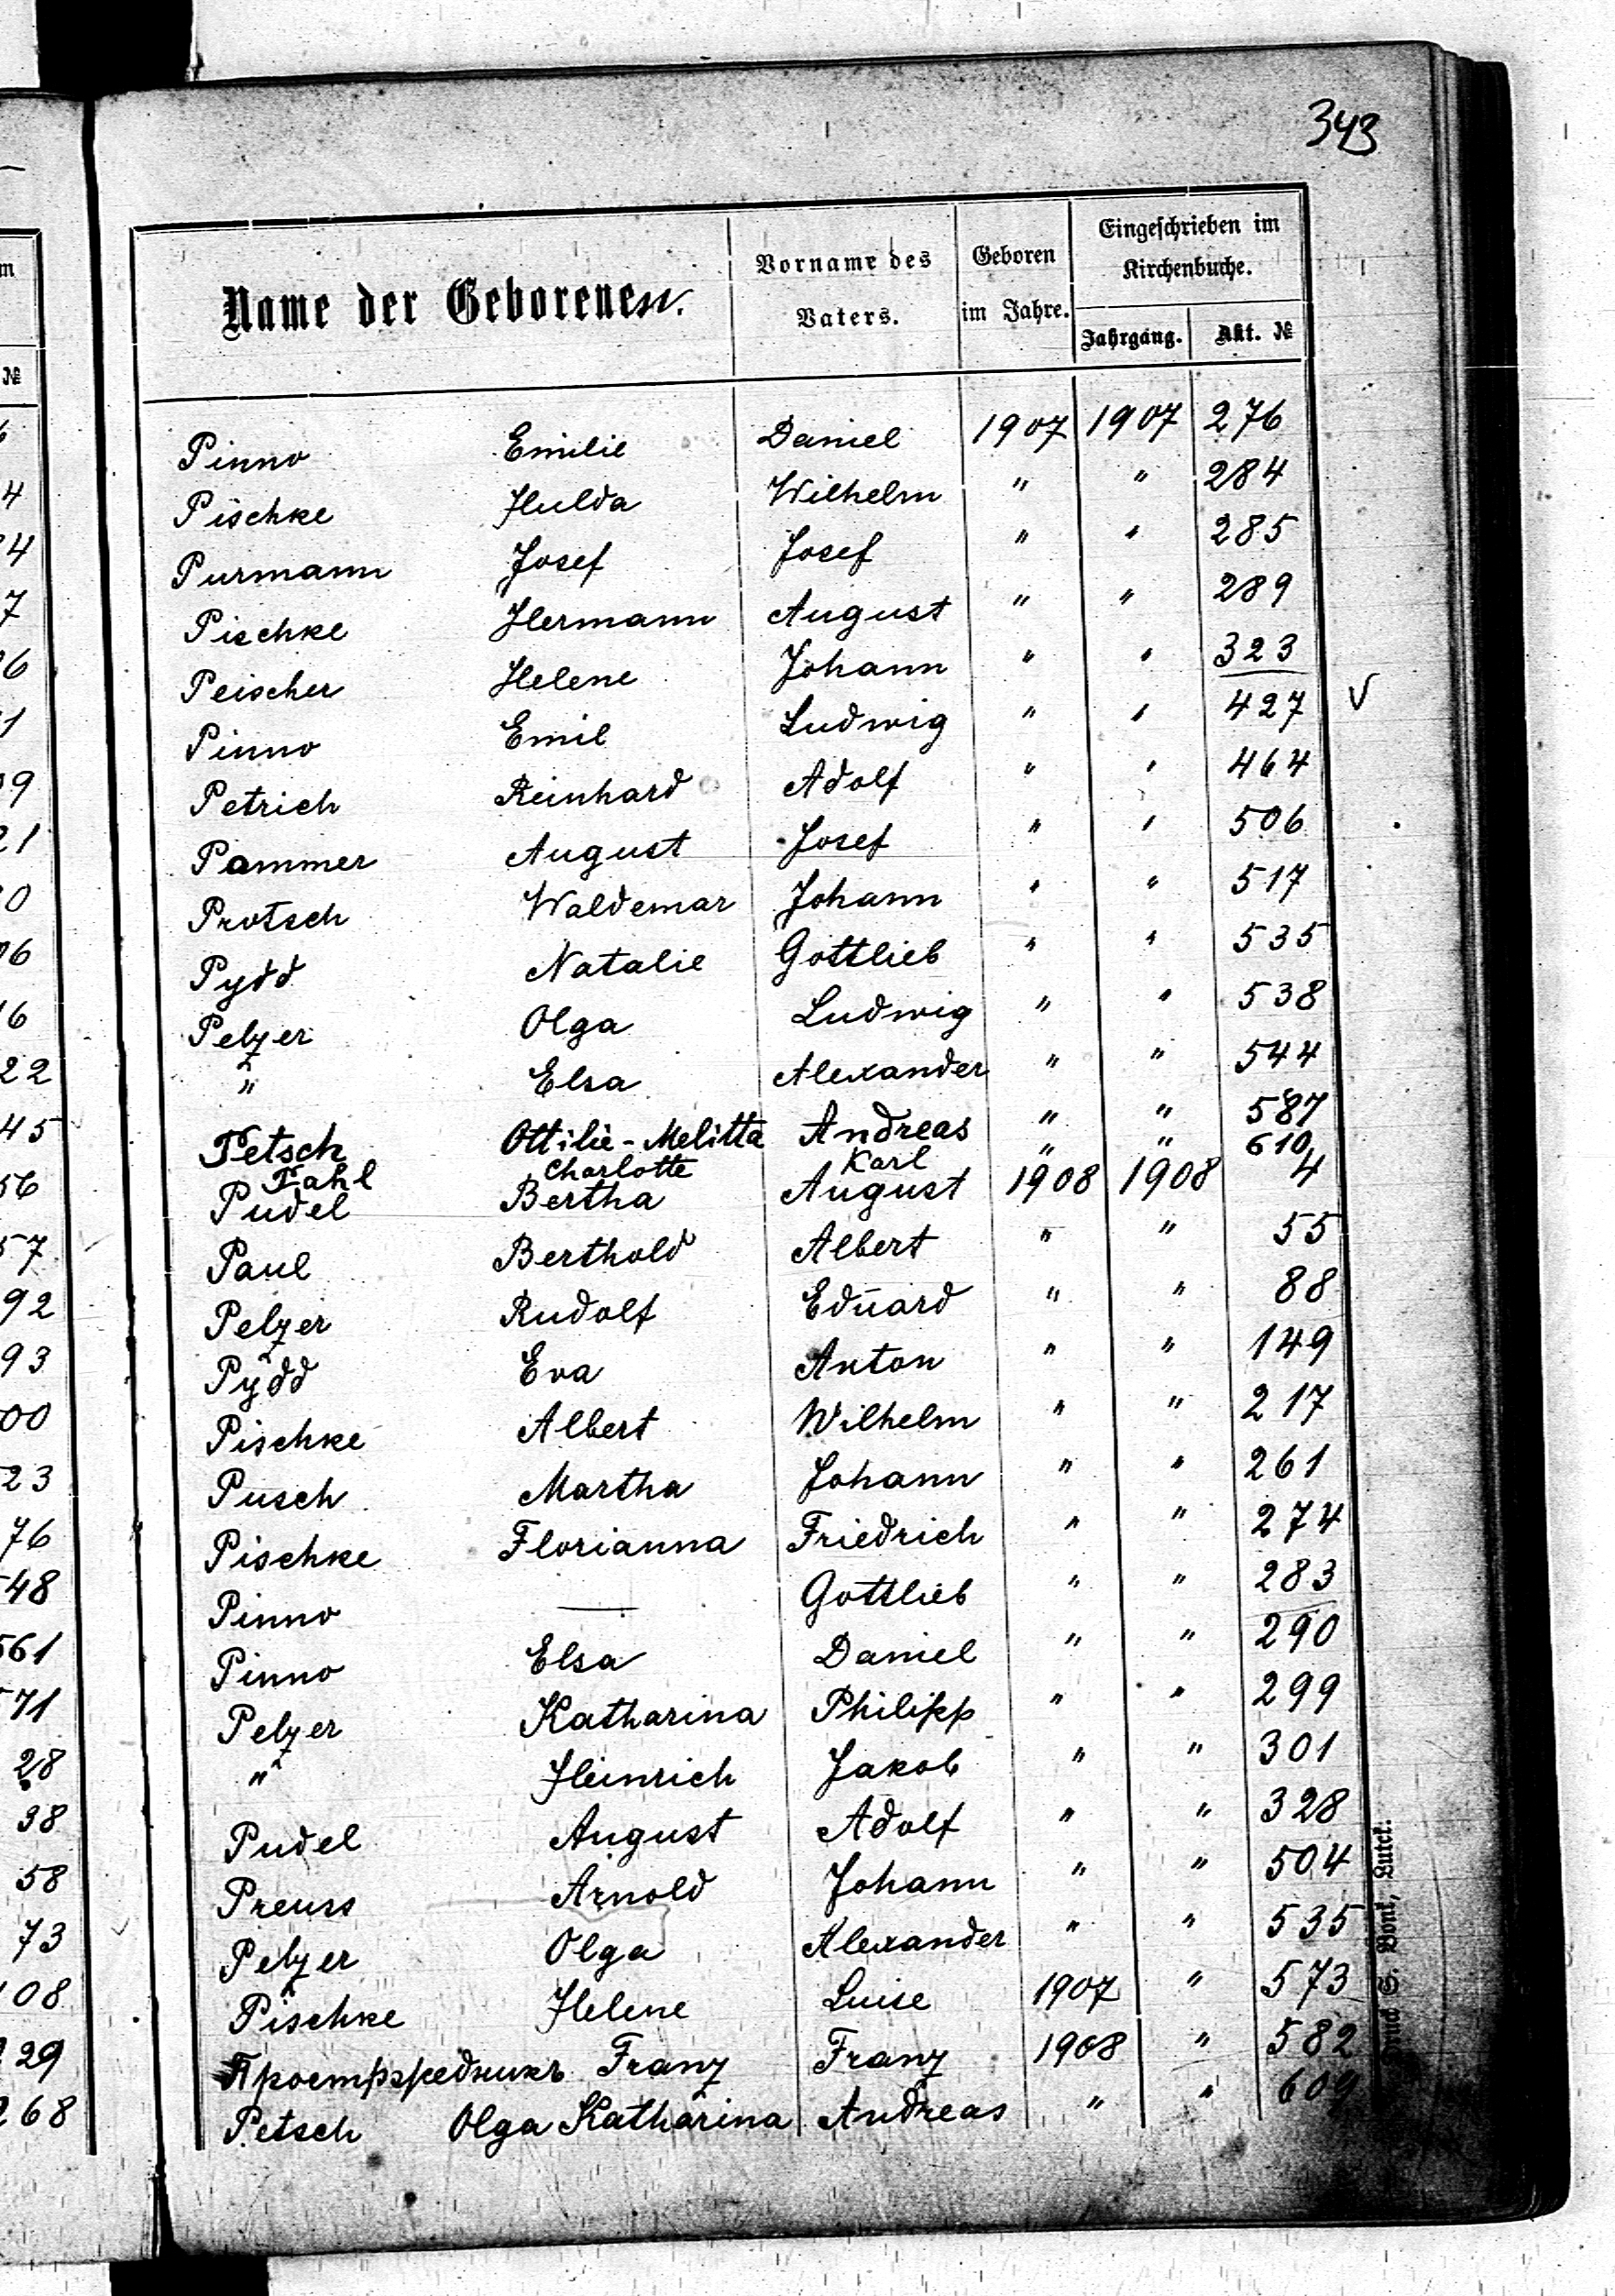 343
Name der Geborenen. Vorname des Vaters. Geboren im Jahre. Eingeschrieben im Kirchenbuche.
Jahrgang. Akt. №
Pinno Emilie Daniel 1907 1907 276
Pischke Hulda Wilhelm " " 284
Purmann Josef Josef " " 285
Pischke Hermann August " " 289
Peischer Helene Johann " " 323
Pinno Emil Ludwig " " 427 V
Petrich Reinhard Adolf " " 464
Pammer August Josef " " 506
Protsch Waldemar Johann " " 517
Pydd Natalie Gottlieb " " 535
Pelzer Olga Ludwig " " 538
" Elsa Alexander " " 544
Petsch Ottilie-Melitta Andreas " " 587
Pahl Charlotte Karl " " 610
Pudel Bertha August 1908 1908 4
Paul Berthold Albert " " 55
Pelzer Rudolf Eduard " " 88
Pydd Eva Anton " " 149
Pischke Albert Wilhelm " " 217
Pusch Martha Johann " " 261
Pischke Florianna Friedrich " " 274
Pinno — Gottlieb " " 283
Pinno Elsa Daniel " " 290
Pelzer Katharina Philipp " " 299
" Heinrich Jakob " " 301
Pudel August Adolf " " 328
Preuss Arnold Johann " " 504
Pelzer Olga Alexander " " 535
Pischke Helene Luise 1907 " 573
Franz Franz 1908 " 582
Petsch Olga Katharina Andreas " " 609
Druck S. Bonk, Luck.